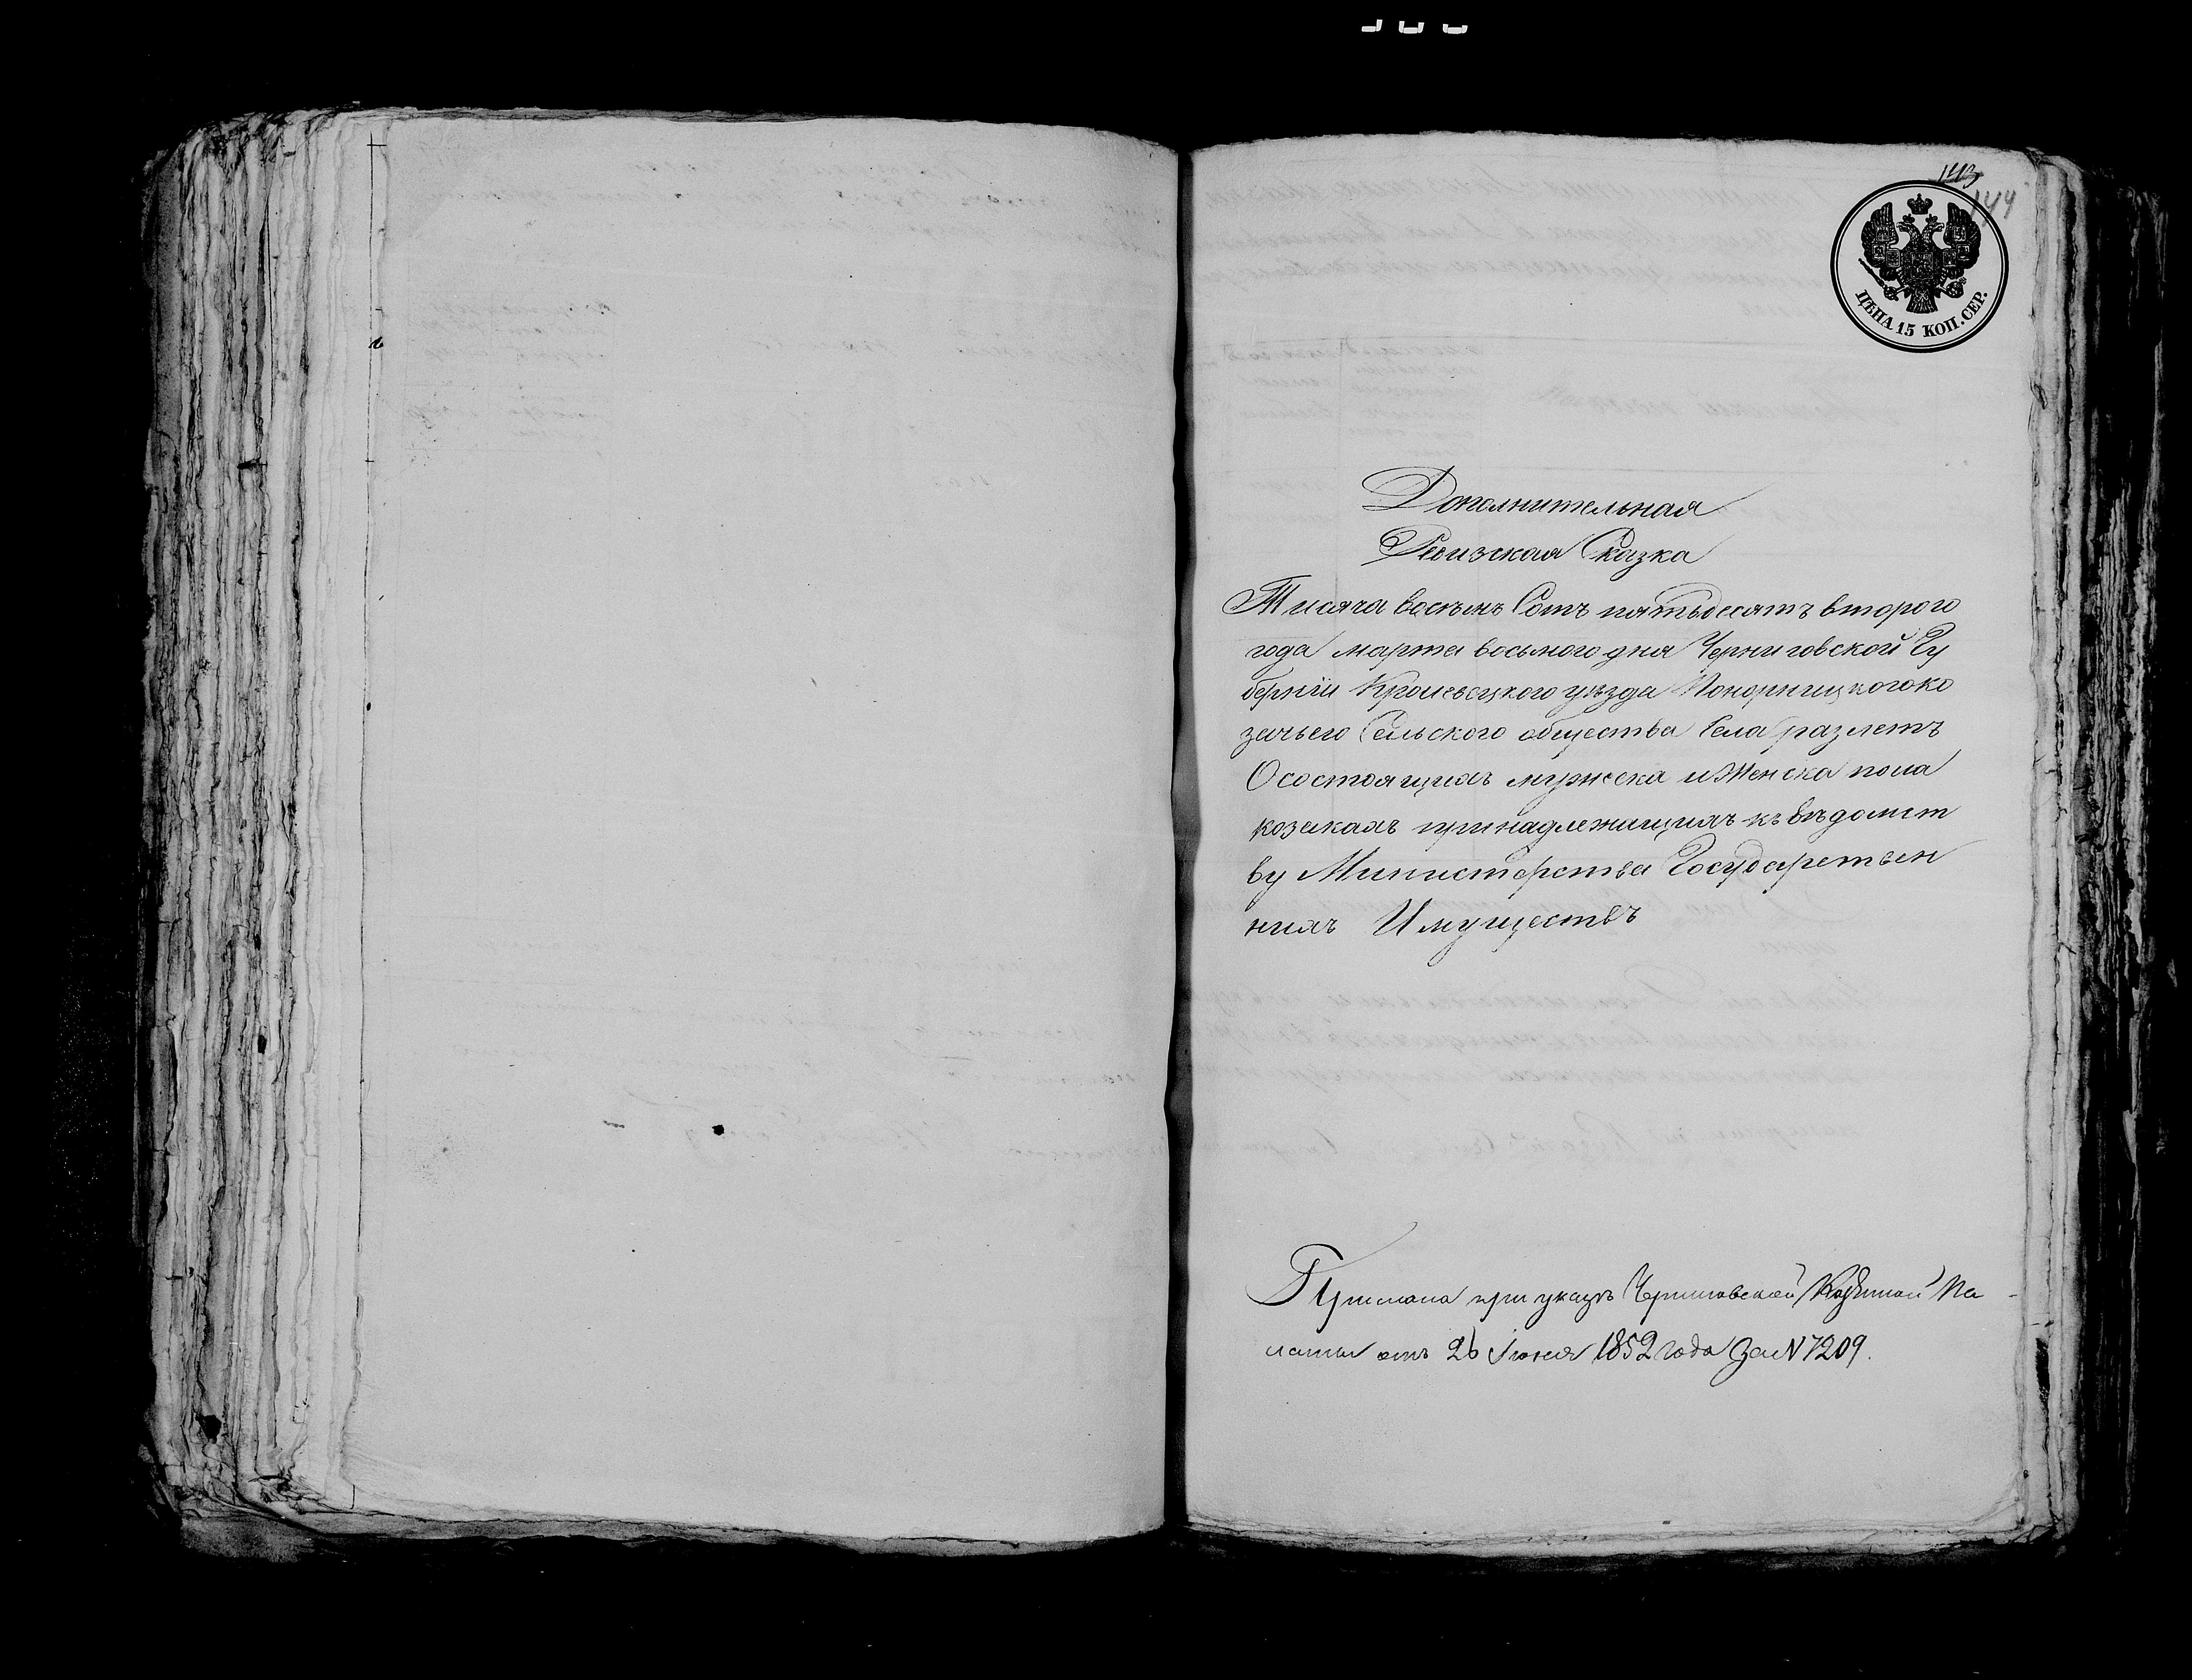 143
144
ЦѢНА 15 КОП. СЕР.
Дополнительная
Ревизская Сказка
Тисяча восемъ Сотъ пятьдесятъ второго
года марта восьмого дня Черниговской Гу
берніи Кролевецкого уѣзда Понорницкого ко
зачьего Сельского общества Села разлетъ
О состоящихъ мужеска и Женска пола
козакахъ принадлежащихъ къ вѣдомст
ву Министерства Государствен
нихъ Имуществъ
Прислана при указѣ Черниговской Казенной Па-
латы отъ 26 Іюня 1852 года За N 7209.